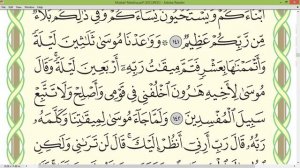 أَبْنَاءَكُمْ وَيَسْتَحْيُونَ نِسَاءَكُمْ وَفِي ذَٰلِكُم بَلَاءٌ
مِّن رَّبِّكُمْ عَظِيمٌ ١٤١ وَوَٰعَدْنَا مُوسَىٰ ثَلَٰثِينَ لَيْلَةً
وَأَتْمَمْنَٰهَا بِعَشْرٍ فَتَمَّ مِيقَٰتُ رَبِّهِ أَرْبَعِينَ لَيْلَةً وَقَالَ
مُوسَىٰ لِأَخِيهِ هَٰرُونَ ٱخْلُفْنِي فِي قَوْمِي وَأَصْلِحْ وَلَا تَتَّبِعْ
سَبِيلَ ٱلْمُفْسِدِينَ ١٤٢ وَلَمَّا جَاءَ مُوسَىٰ لِمِيقَٰتِنَا وَكَلَّمَهُ
رَبُّهُ قَالَ رَبِّ أَرِنِي أَنظُرْ إِلَيْكَ قَالَ لَن تَرَىٰنِي وَلَٰكِنِ